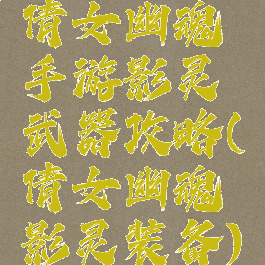 倩女幽魂
手游影灵
武器攻略(
倩女幽魂
影灵装备)